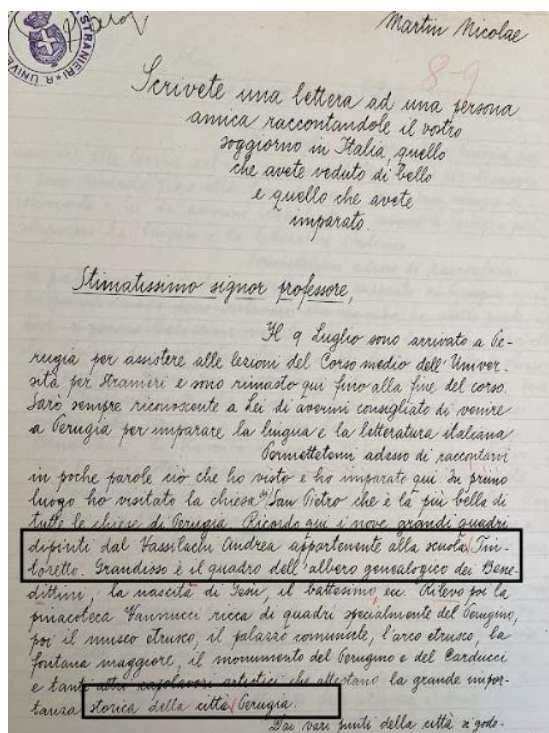 STRANIERI * R. UNIVE
Martin Nicolae
8-9
Scrivete una lettera ad una persona
amica raccontandole il vostro
soggiorno in Italia, quello
che avete veduto di bello
e quello che avete
imparato.
Stimatissimo signor professore,
Il 9 Luglio sono arrivato a Pe-
rugia per assistere alle lezioni del Corso medio dell'Univer-
sità per Stranieri e sono rimasto qui fino alla fine del corso.
Sarò sempre riconoscente a Lei di avermi consigliato di venire
a Perugia per imparare la lingua e la letteratura italiana
Permettetemi adesso di raccontarvi
in poche parole ciò che ho visto e ho imparato qui In primo
luogo ho visitato la chiesa San Pietro che è la più bella di
tutte le chiese di Perugia. Ricordo qui i nove grandi quadri
dipinti dal Vassilachi Andrea appartenente alla scuola Tin-
toretto. Grandisso è il quadro dell'albero genealogico dei Bene-
dittini, la nascità di Gesù, il battesimo, ecc. Rilevo poi la
pinacoteca Vannucci ricca di quadri specialmente del Perugino,
poi il museo etrusco, il palazzo comunale, l'arco etrusco, la
fontana maggiore, il monumento del Perugino e del Carducci
e tanti altri capolavori artistici che attestano la grande impor-
tanza storica della città Perugia.
Dai vari punti della città si gode-